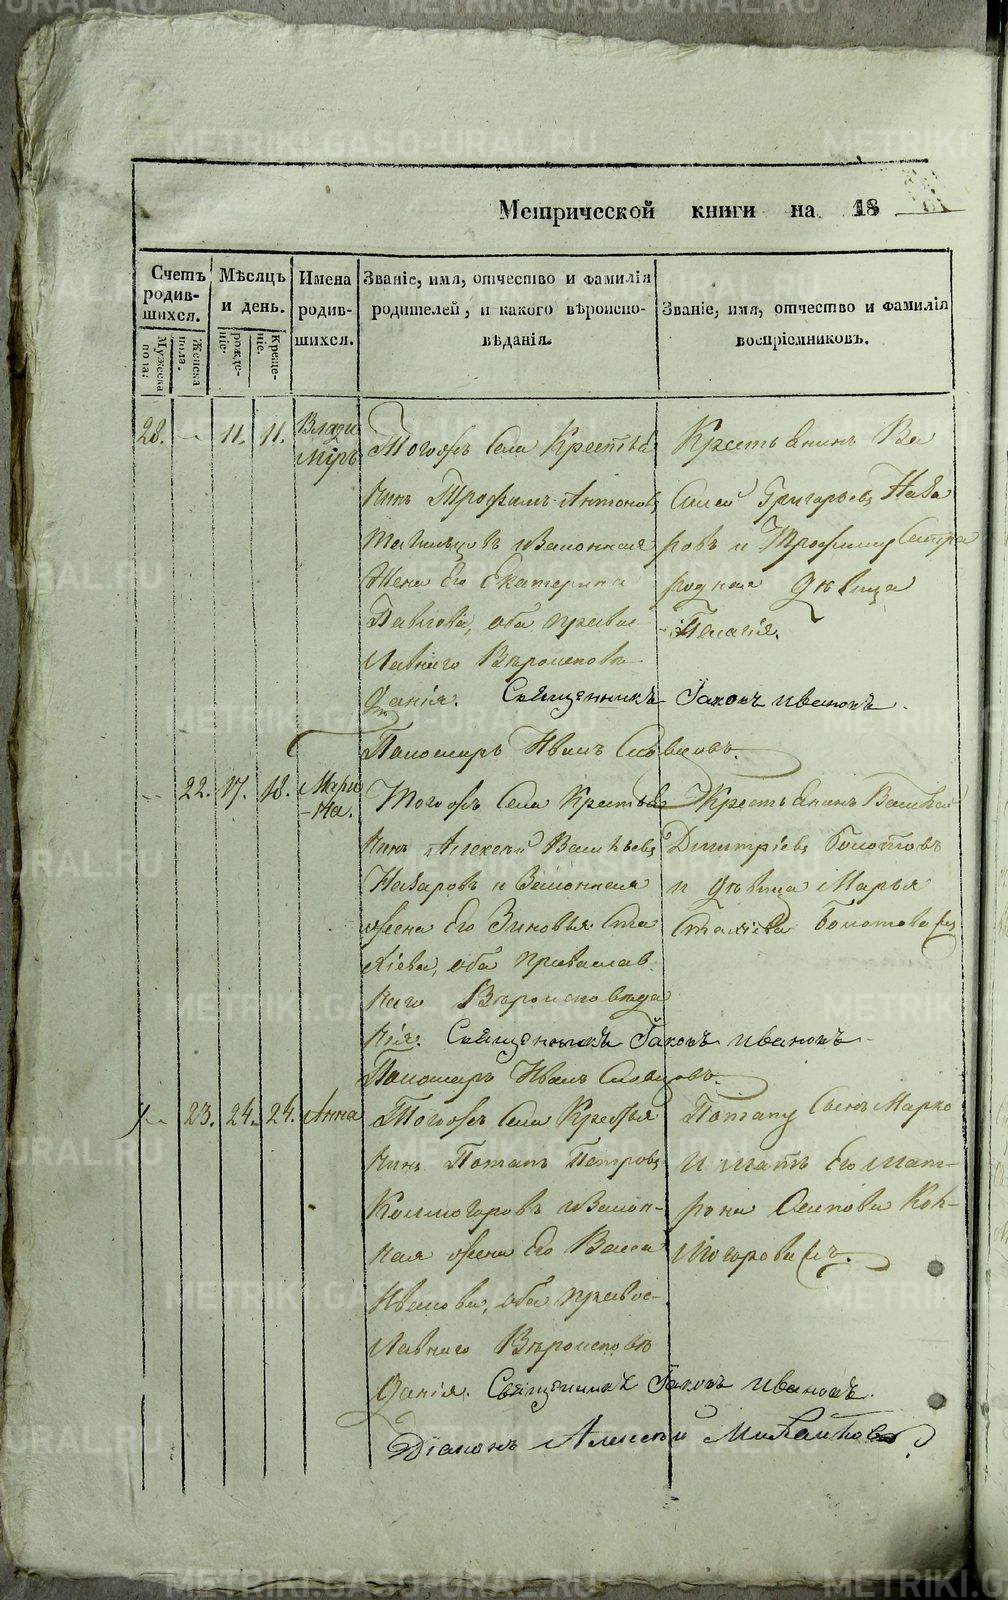 METRIKI.GASO-URAL.RU
Метрической книги на 18
Счетъ родив-шихся.
Мужеска пола.
Женска пола.
Мѣсяцъ и день.
рожде-ніе.
Креще-ніе.
Имена родив-шихся.
Званіе, имя, отчество и фамилія родителей, и какого вѣроиспо-вѣданія.
Званіе, имя, отчество и фамилія воспріемниковъ.
28. 11. 11. Влади
міръ
Тогожъ Села Крестьѧ
нинъ Трофимъ Антоновъ
и Законная
Жена Его Екатерина
Павлова, оба правос
лавнаго Вѣроисповѣ
данія. Священникъ Іаковъ Ивановъ.
Пономарь Иванъ Словцовъ.
Крестьянинъ Ва
силей Григорьевъ Наза
ровъ и Трофиму Сестра
родная дѣвица
Пелагія.
22. 17. 18. Мари
на.
Тогожъ Села Крестья
нинъ Алексей Васильевъ
Назаровъ и Законная
жена Его Зиновья Ста
хіева, оба православ
наго Вѣроисповѣда
нія. Священникъ Іаковъ Ивановъ.
Пономарь Иванъ Словцовъ.
Крестьянинъ Василей
Димитріевъ Болотовъ
и дѣвица Марья
Стахіева Болотова
23. 24. 24. Анна
Тогожъ Села Крестья
нинъ Потапъ Петровъ
Колмогоровъ и Закон-
ная жена Его Васса
Иванова, оба правос-
лавнаго Вѣроисповѣ
данія. Священникъ Іаковъ Ивановъ.
Діаконъ Алексей Михайловъ
Потапу Сынъ Марко
и мать Его Мат-
рона Осипова Кол-
могоровы